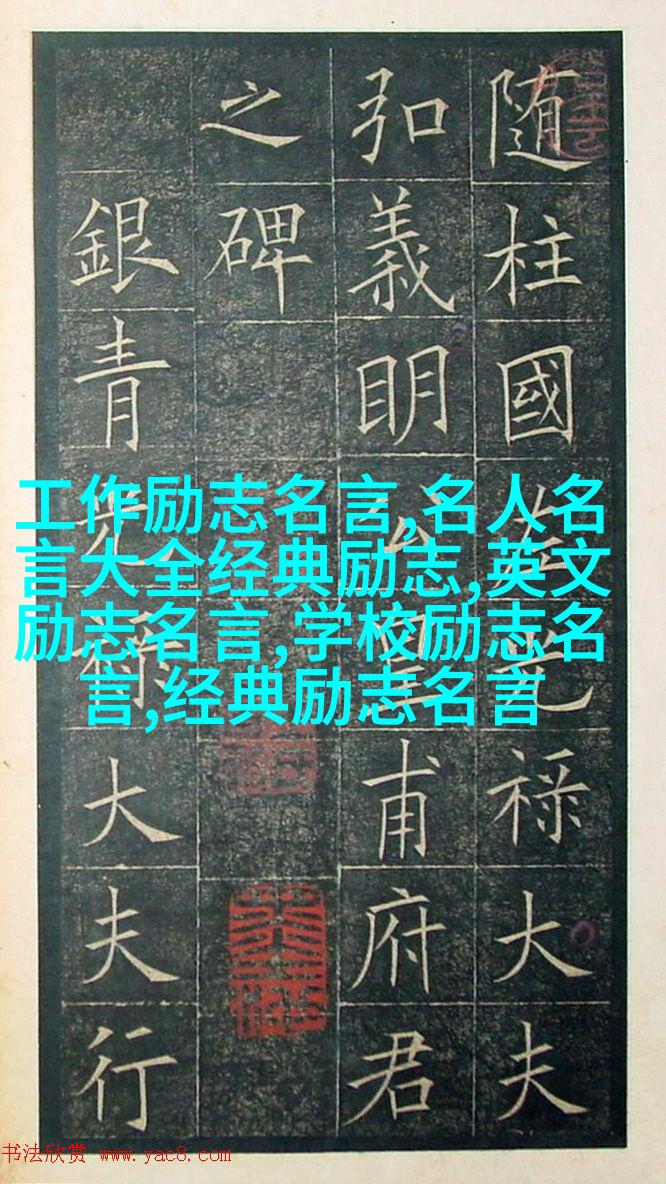 随柱國左光禄大夫
弘義眀公皇甫府君
之碑
銀青光禄大夫行
工作励志名言,名人名
言大全经典励志,英文
励志名言,学校励志名
言,经典励志名言
书法欣赏 www.yac8.com